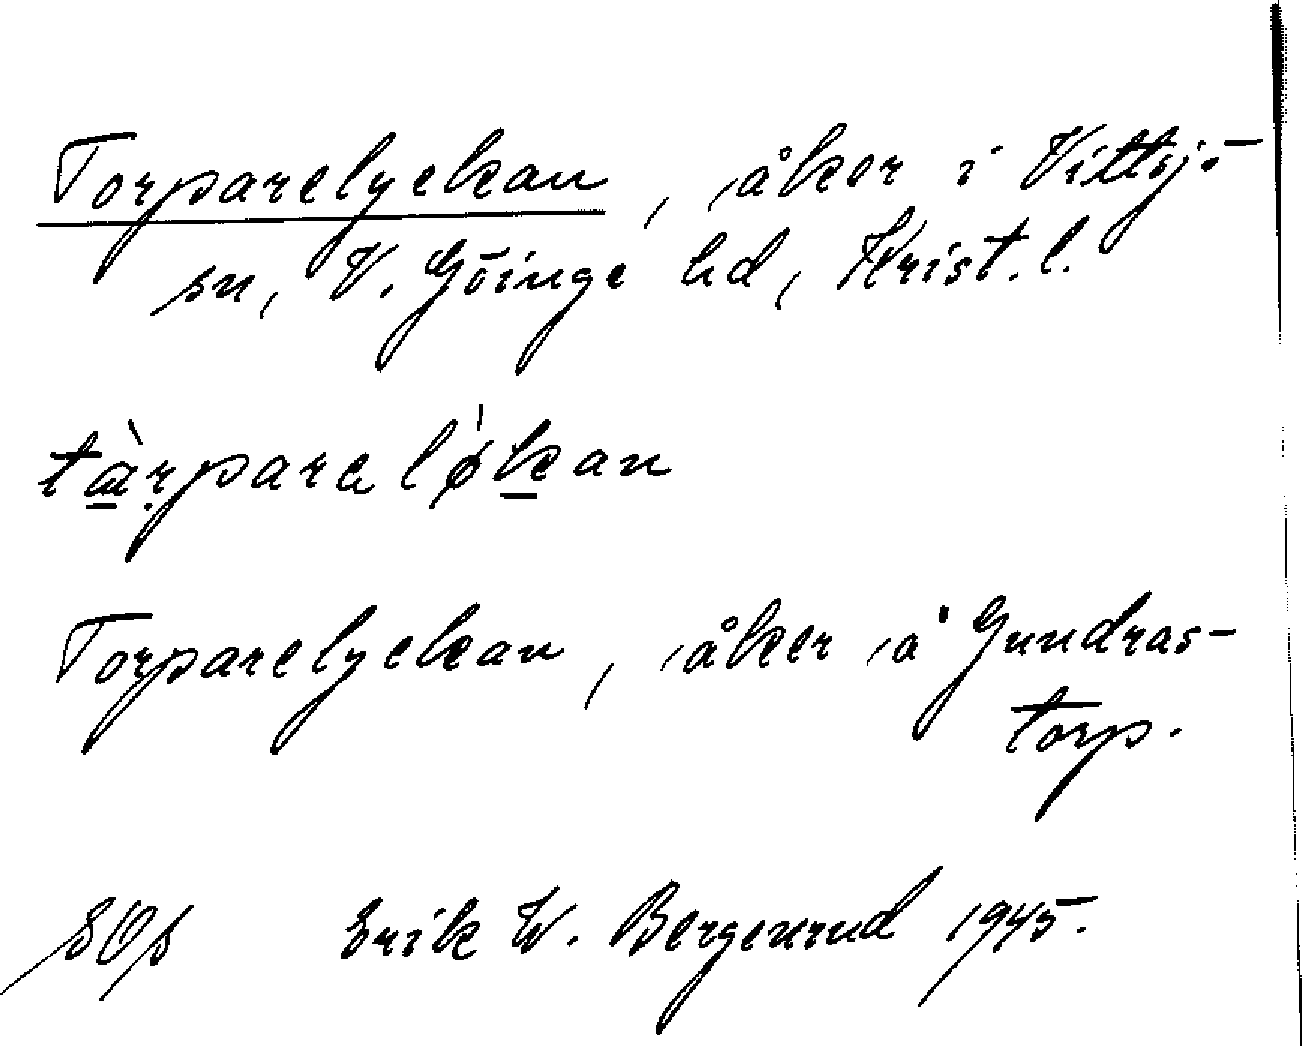 Torparelyckan, åker i Vittsjö
sn, V. Göinge hd, Krist. l.
tàrparelǿkan
Torparelyckan, åker å Gundras-
torp.
Erik W. Bergenrud 1945.